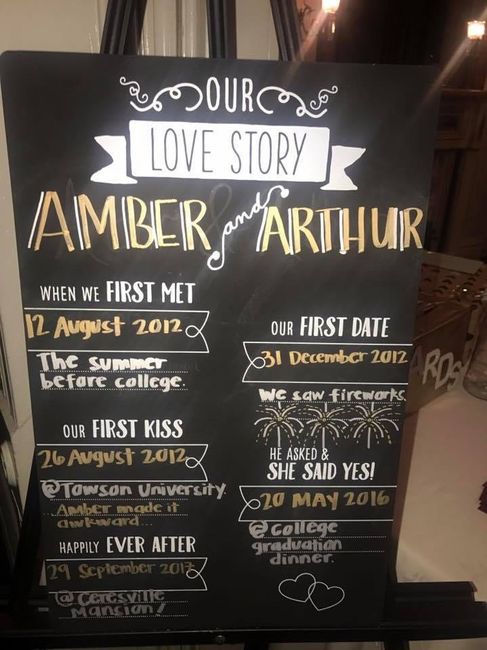 OUR
LOVE STORY
AMBER and ARTHUR
WHEN WE FIRST MET
12 August 2012
The summer
before college.
OUR FIRST DATE
31 December 2012
We saw fireworks
OUR FIRST KISS
26 August 2012
@Towson University.
Amber made it
awkward...
HE ASKED &
SHE SAID YES!
20 MAY 2016
@ College
graduation
dinner.
HAPPILY EVER AFTER
29 September 2017
@ Ceresville
Mansion!
ARDS